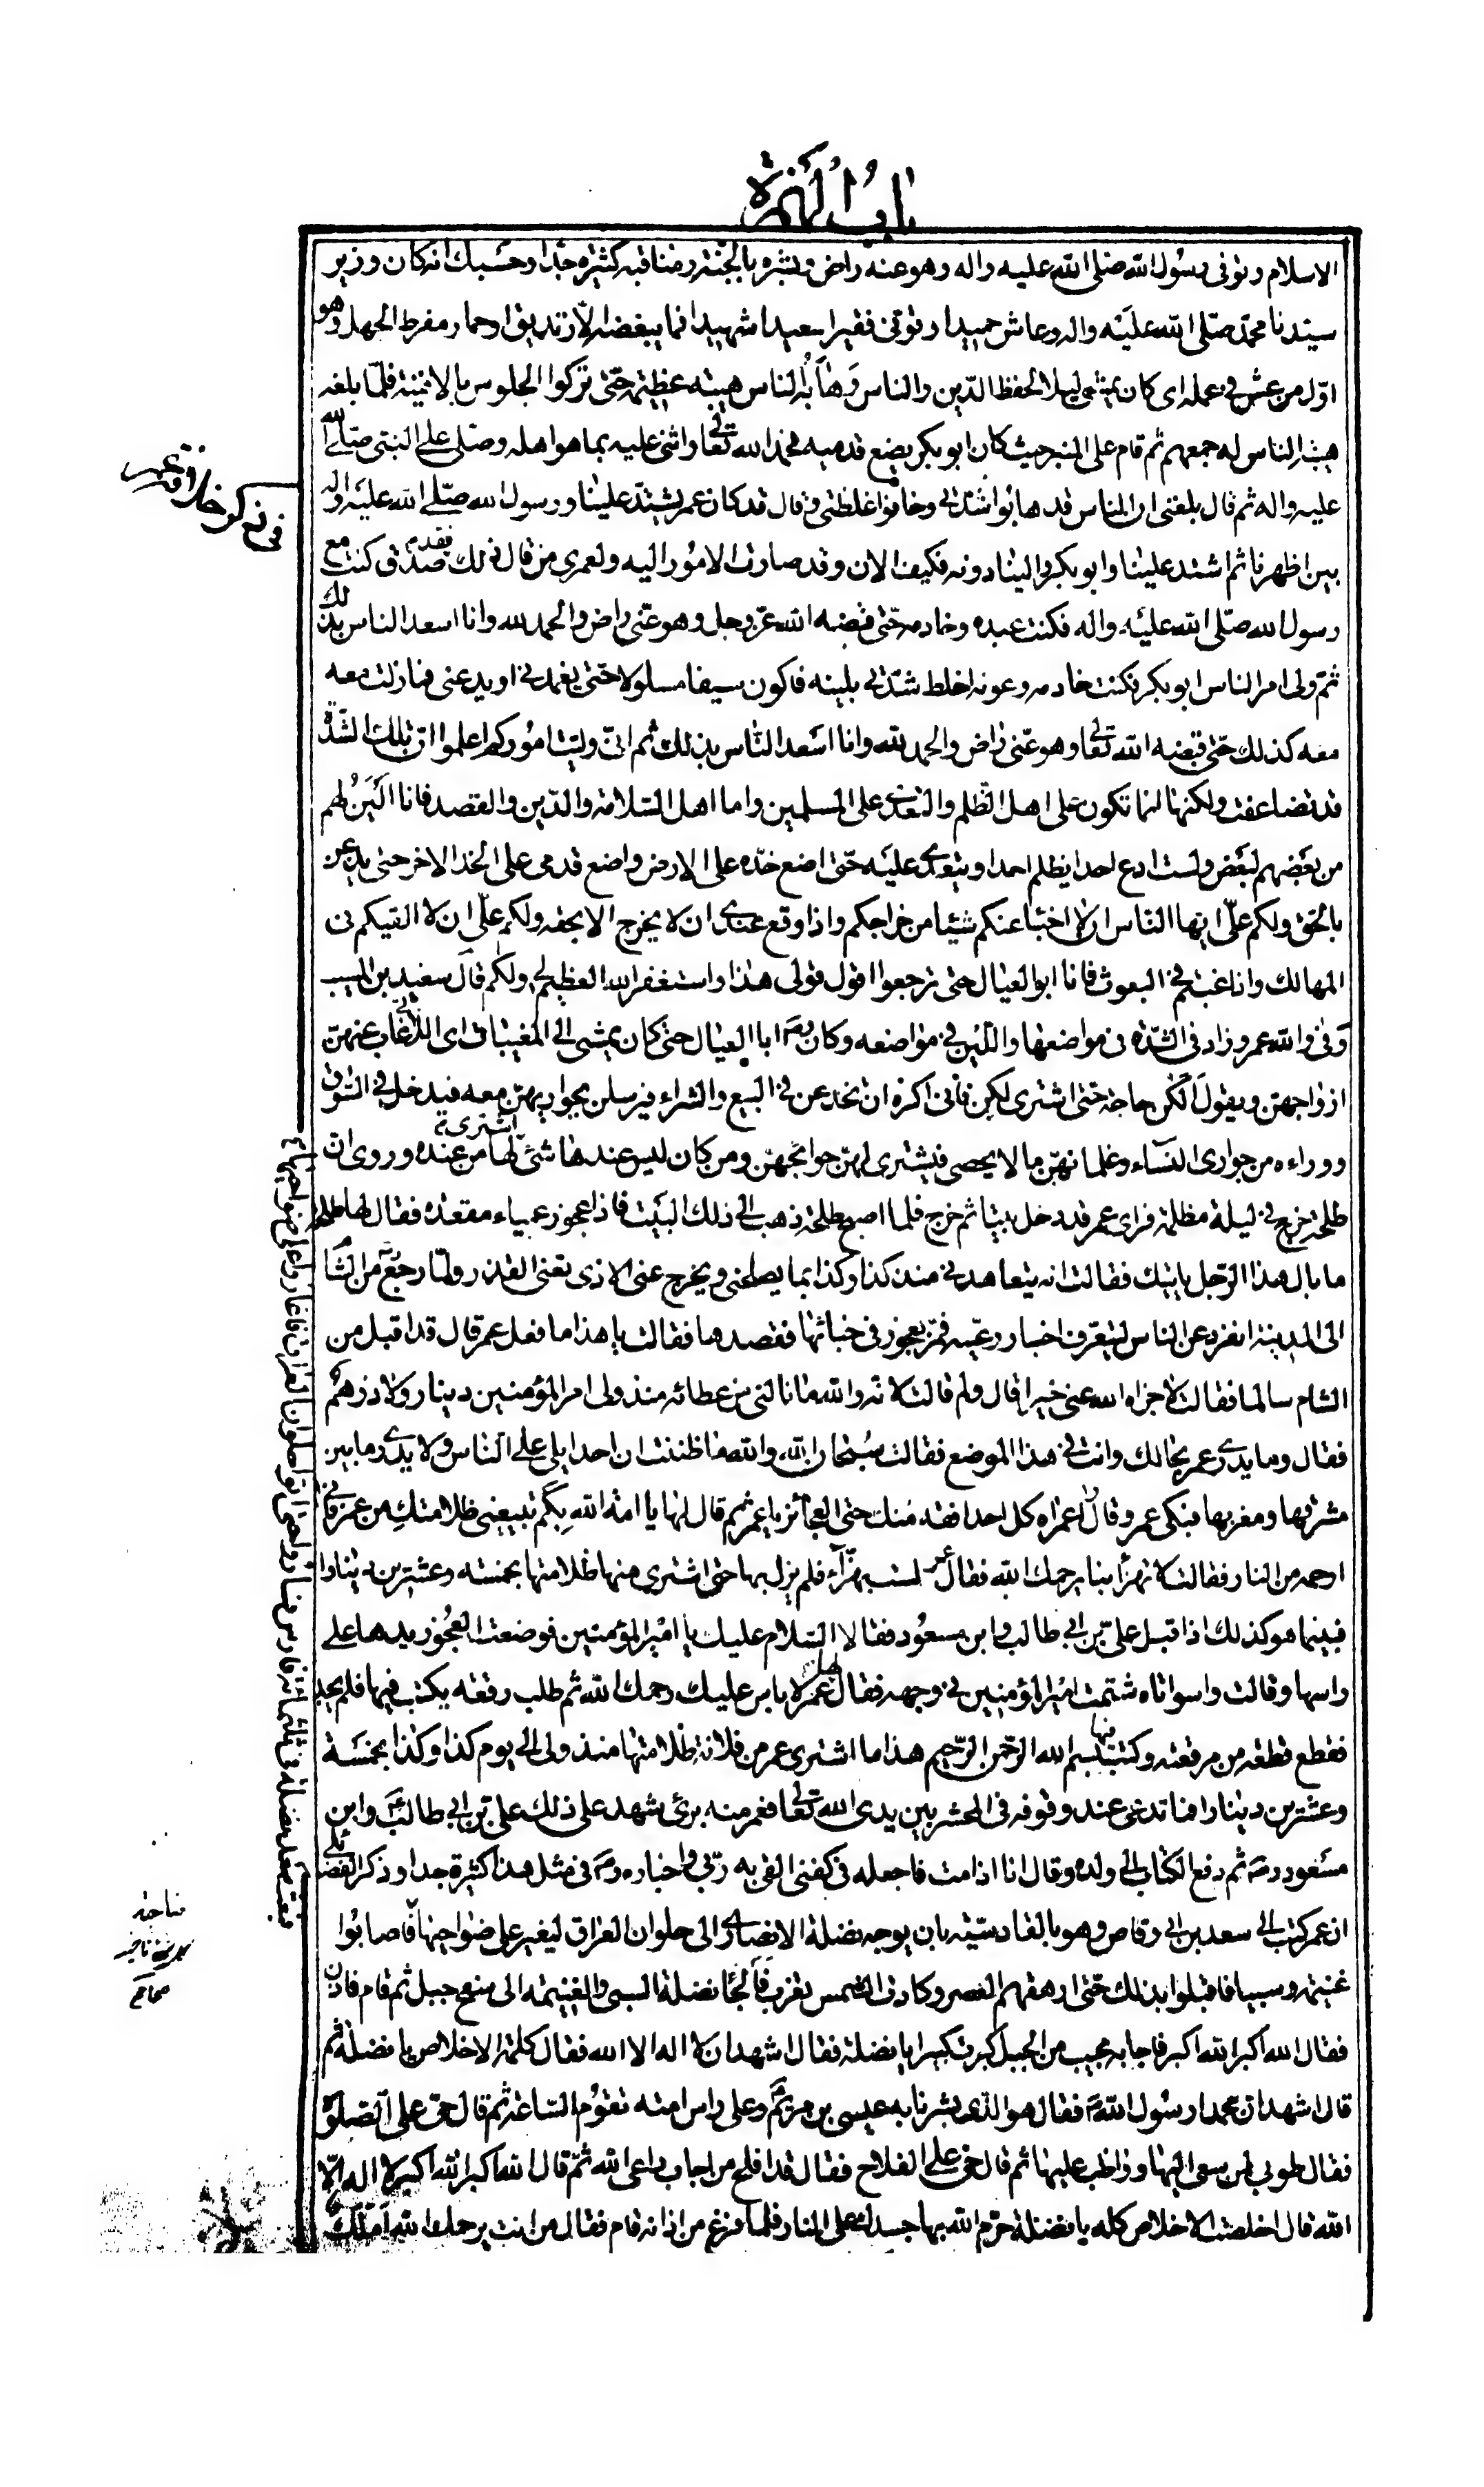 باب الهمزة
الاسلام وتوفى رسول الله صلى الله عليه واله وهو عنه راض وبشره بالجنة ومناقبه كثيرة جدا وحسبك انه كان وزير
سيدنا محمد صلى الله عليه واله وعاش حميدا وتوفى فقيرا سعيدا شهيدا فما يبغضه الا زنديق او حمار مفرط الجهل وهو
اول من عس فى عمله اى كان يمشى ليلا لحفظ الدين والناس وهابه الناس هيبة عظيمة حتى تركوا الجلوس بالافنية فلما بلغه
هيبة الناس له جمعهم ثم قام على المنبر حيث كان ابو بكر يضع قدميه فحمد الله تعالى واثنى عليه بما هو اهله وصلى على النبى صلى الله
عليه واله ثم قال بلغنى ان الناس قد هابوا شدتى وخافوا غلظتى وقال قد كان عمر يشتد علينا ورسول الله صلى الله عليه واله
بين اظهرنا ثم اشتد علينا وابو بكر والينا دونه فكيف الان وقد صارت الامور اليه ولعمرى من قال ذلك فقد صدق كنت مع
رسول الله صلى الله عليه واله فكنت عبده وخادمه حتى قبضه الله عز وجل وهو عنى راض والحمد لله وانا اسعد الناس بذلك
ثم ولى امر الناس ابو بكر فكنت خادمه وعونه اخلط شدتى بلينه فاكون سيفا مسلولا حتى يغمدنى او يدعنى فما زلت معه
معه كذلك حتى قبضه الله تعالى وهو عنى راض والحمد لله وانا اسعد الناس بذلك ثم انى وليت اموركم اعلموا ان تلك الشدة
قد تضاعفت ولكنها انما تكون على اهل الظلم والتعدى على المسلمين واما اهل السلامة والدين والقصد فانا الين لهم
من بعضهم لبعض ولست ادع احدا يظلم احدا ويتعدى عليه حتى اضع خده على الارض واضع قدمى على الخد الاخر حتى يذعن
بالحق ولكم على ايها الناس ان لا اخبأ عنكم شيئا من خراجكم واذا وقع عندى ان لا يخرج الا بحقه ولكم على ان لا القيكم فى
المهالك واذا غبتم فى البعوث فانا ابو العيال حتى ترجعوا اقول قولى هذا واستغفر الله العظيم لى ولكم قال سعيد بن المسيب
وفى والله عمر وزاد فى الشدة فى مواضعها واللين فى مواضعه وكان رضه ابا العيال حتى كان يمشى الى المغيبات اى اللاتى غاب عنهن
ازواجهن ويقول الكن حاجة حتى اشترى لكن فانى اكره ان تخدعن فى البيع والشراء فيرسلن بجواريهن معه فيدخل فى السوق
ووراءه من جوارى النساء وغلمانهن ما لا يحصى فيشترى لهن حوائجهن ومن كان ليس عندها شئ اشترى لها من عنده وروى ان
طلحة خرج فى ليلة مظلمة فراى عمر قد دخل بيتا ثم خرج فلما اصبح طلحة ذهب الى ذلك البيت فاذا عجوز عمياء مقعدة فقال لها طلحة
ما بال هذا الرجل ياتيك فقالت انه يتعاهدنى منذ كذا وكذا بما يصلحنى ويخرج عنى الاذى تعنى القذر ولما رجع من الشام
الى المدينة انفرد عن الناس ليتعرف اخبار رعيته فمر بعجوز فى خبائها فقصدها فقالت يا هذا ما فعل عمر قال قد اقبل من
الشام سالما فقالت لا جزاه الله عنى خيرا قال ولم قالت لانه والله ما نالنى من عطائه منذ ولى امر المؤمنين دينار ولا درهم
فقال وما يدرى عمر بحالك وانت فى هذا الموضع فقالت سبحان الله والله ما ظننت ان احدا يلى على الناس ولا يدرى ما بين
مشرقها ومغربها فبكى عمر وقال واعمراه كل احد افقه منك حتى العجائز يا عمر ثم قال لها يا امة الله بكم تبيعينى ظلامتك من عمر فانى
ارحمه من النار فقالت لا تهزأ بنا يرحمك الله فقال عمر لست بهزاء فلم يزل بها حتى اشترى منها ظلامتها بخمسة وعشرين دينارا
فبينما هو كذلك اذ اقبل على بن ابى طالب وابن مسعود فقالا السلام عليك يا امير المؤمنين فوضعت العجوز يدها على
راسها وقالت واسوأتاه شتمت امير المؤمنين فى وجهه فقال لها عمر لا باس عليك رحمك الله ثم طلب رقعة يكتب فيها فلم يجد
فقطع قطعة من مرقعته وكتب فيها بسم الله الرحمن الرحيم هذا ما اشترى عمر من فلانة ظلامتها منذ ولى الى يوم كذا وكذا بخمسة
وعشرين دينارا فما تدعى عند وقوفه فى المحشر بين يدى الله تعالى فعمر منه برئ شهد على ذلك على بن ابى طالب وابن
مسعود رضه ثم دفع الكتاب الى ولده وقال اذا انا مت فاجعله فى كفنى القى به ربى واخباره رضه فى مثل هذا كثيرة جدا وذكر الفضائلى
ان عمر كتب الى سعد بن ابى وقاص وهو بالقادسية بان يوجه نضلة الانصارى الى حلوان العراق ليغير على ضواحيها فاصابوا
غنيمة وسبيا فاقبلوا بذلك حتى ارهقهم العصر وكادت الشمس تغرب فالجأ نضلة السبى والغنيمة الى سفح جبل ثم قام فاذن
فقال الله اكبر الله اكبر فاجابه مجيب من الجبل كبرت كبيرا يا نضلة فقال اشهد ان لا اله الا الله فقال كلمة الاخلاص يا نضلة ثم
قال اشهد ان محمدا رسول الله فقال هو الذى بشرنا به عيسى بن مريم وعلى راس امته تقوم الساعة ثم قال حى على الصلوة
فقال طوبى لمن سعى اليها وواظب عليها ثم قال حى على الفلاح فقال قد افلح من اجاب داعى الله ثم قال الله اكبر الله اكبر لا اله الا
الله قال اخلصت الاخلاص كله يا نضلة حرم الله بها جسدك على النار فلما فرغ من اذانه قام فقال من انت يرحمك الله املك